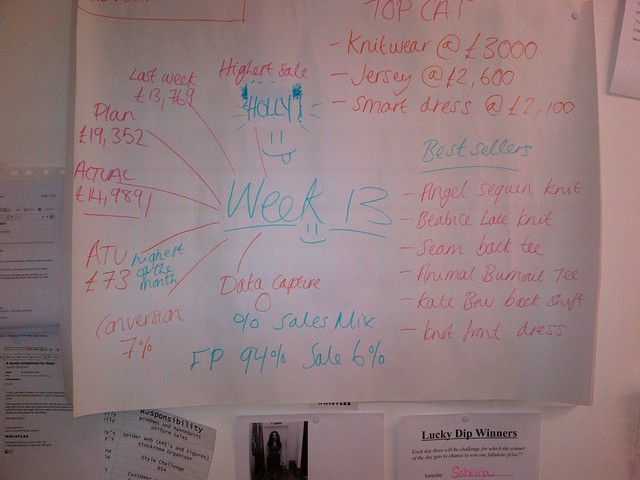 TOP CAT
- Knitwear @ £3000
- Jersey @ £2,600
- smart dress @ £2,100
Last week
£13,769
Highest sale
"HOLLY"
Plan
£19,352
ACTUAL
£14,989
Week 13
ATV highest
£73 of the
month
Conversion
7%
Data capture
0
% Sales Mix
FP 94% Sale 6%
Best sellers
- Angel sequin knit
- Beatrice Lace knit
- Seam back tee
- Animal Burnout Tee
- Kate Bow back shift
- Knot front dress
Responsibility
Windows and Mannequins
Uniform Sales
Spider web (KPI's and Figures)
Stockroom Organiser
Style Challenge
Customer
WHISTLES
Lucky Dip Winners
Each day there will be challenge for which the winner
of the day gets to chance to win one fabulous prize!!!
Saturday Sabrina